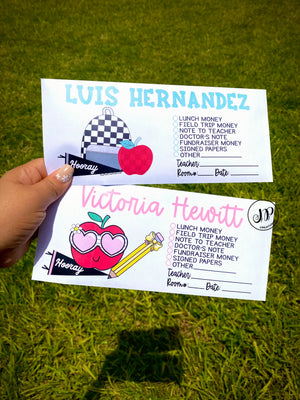 LUIS HERNANDEZ
LUNCH MONEY
FIELD TRIP MONEY
NOTE TO TEACHER
DOCTOR'S NOTE
FUNDRAISER MONEY
SIGNED PAPERS
OTHER
Hooray
Teacher
Room# Date
Victoria Hewitt
LUNCH MONEY
FIELD TRIP MONEY
NOTE TO TEACHER
DOCTOR'S NOTE
FUNDRAISER MONEY
SIGNED PAPERS
OTHER
Hooray
Teacher
Room# Date